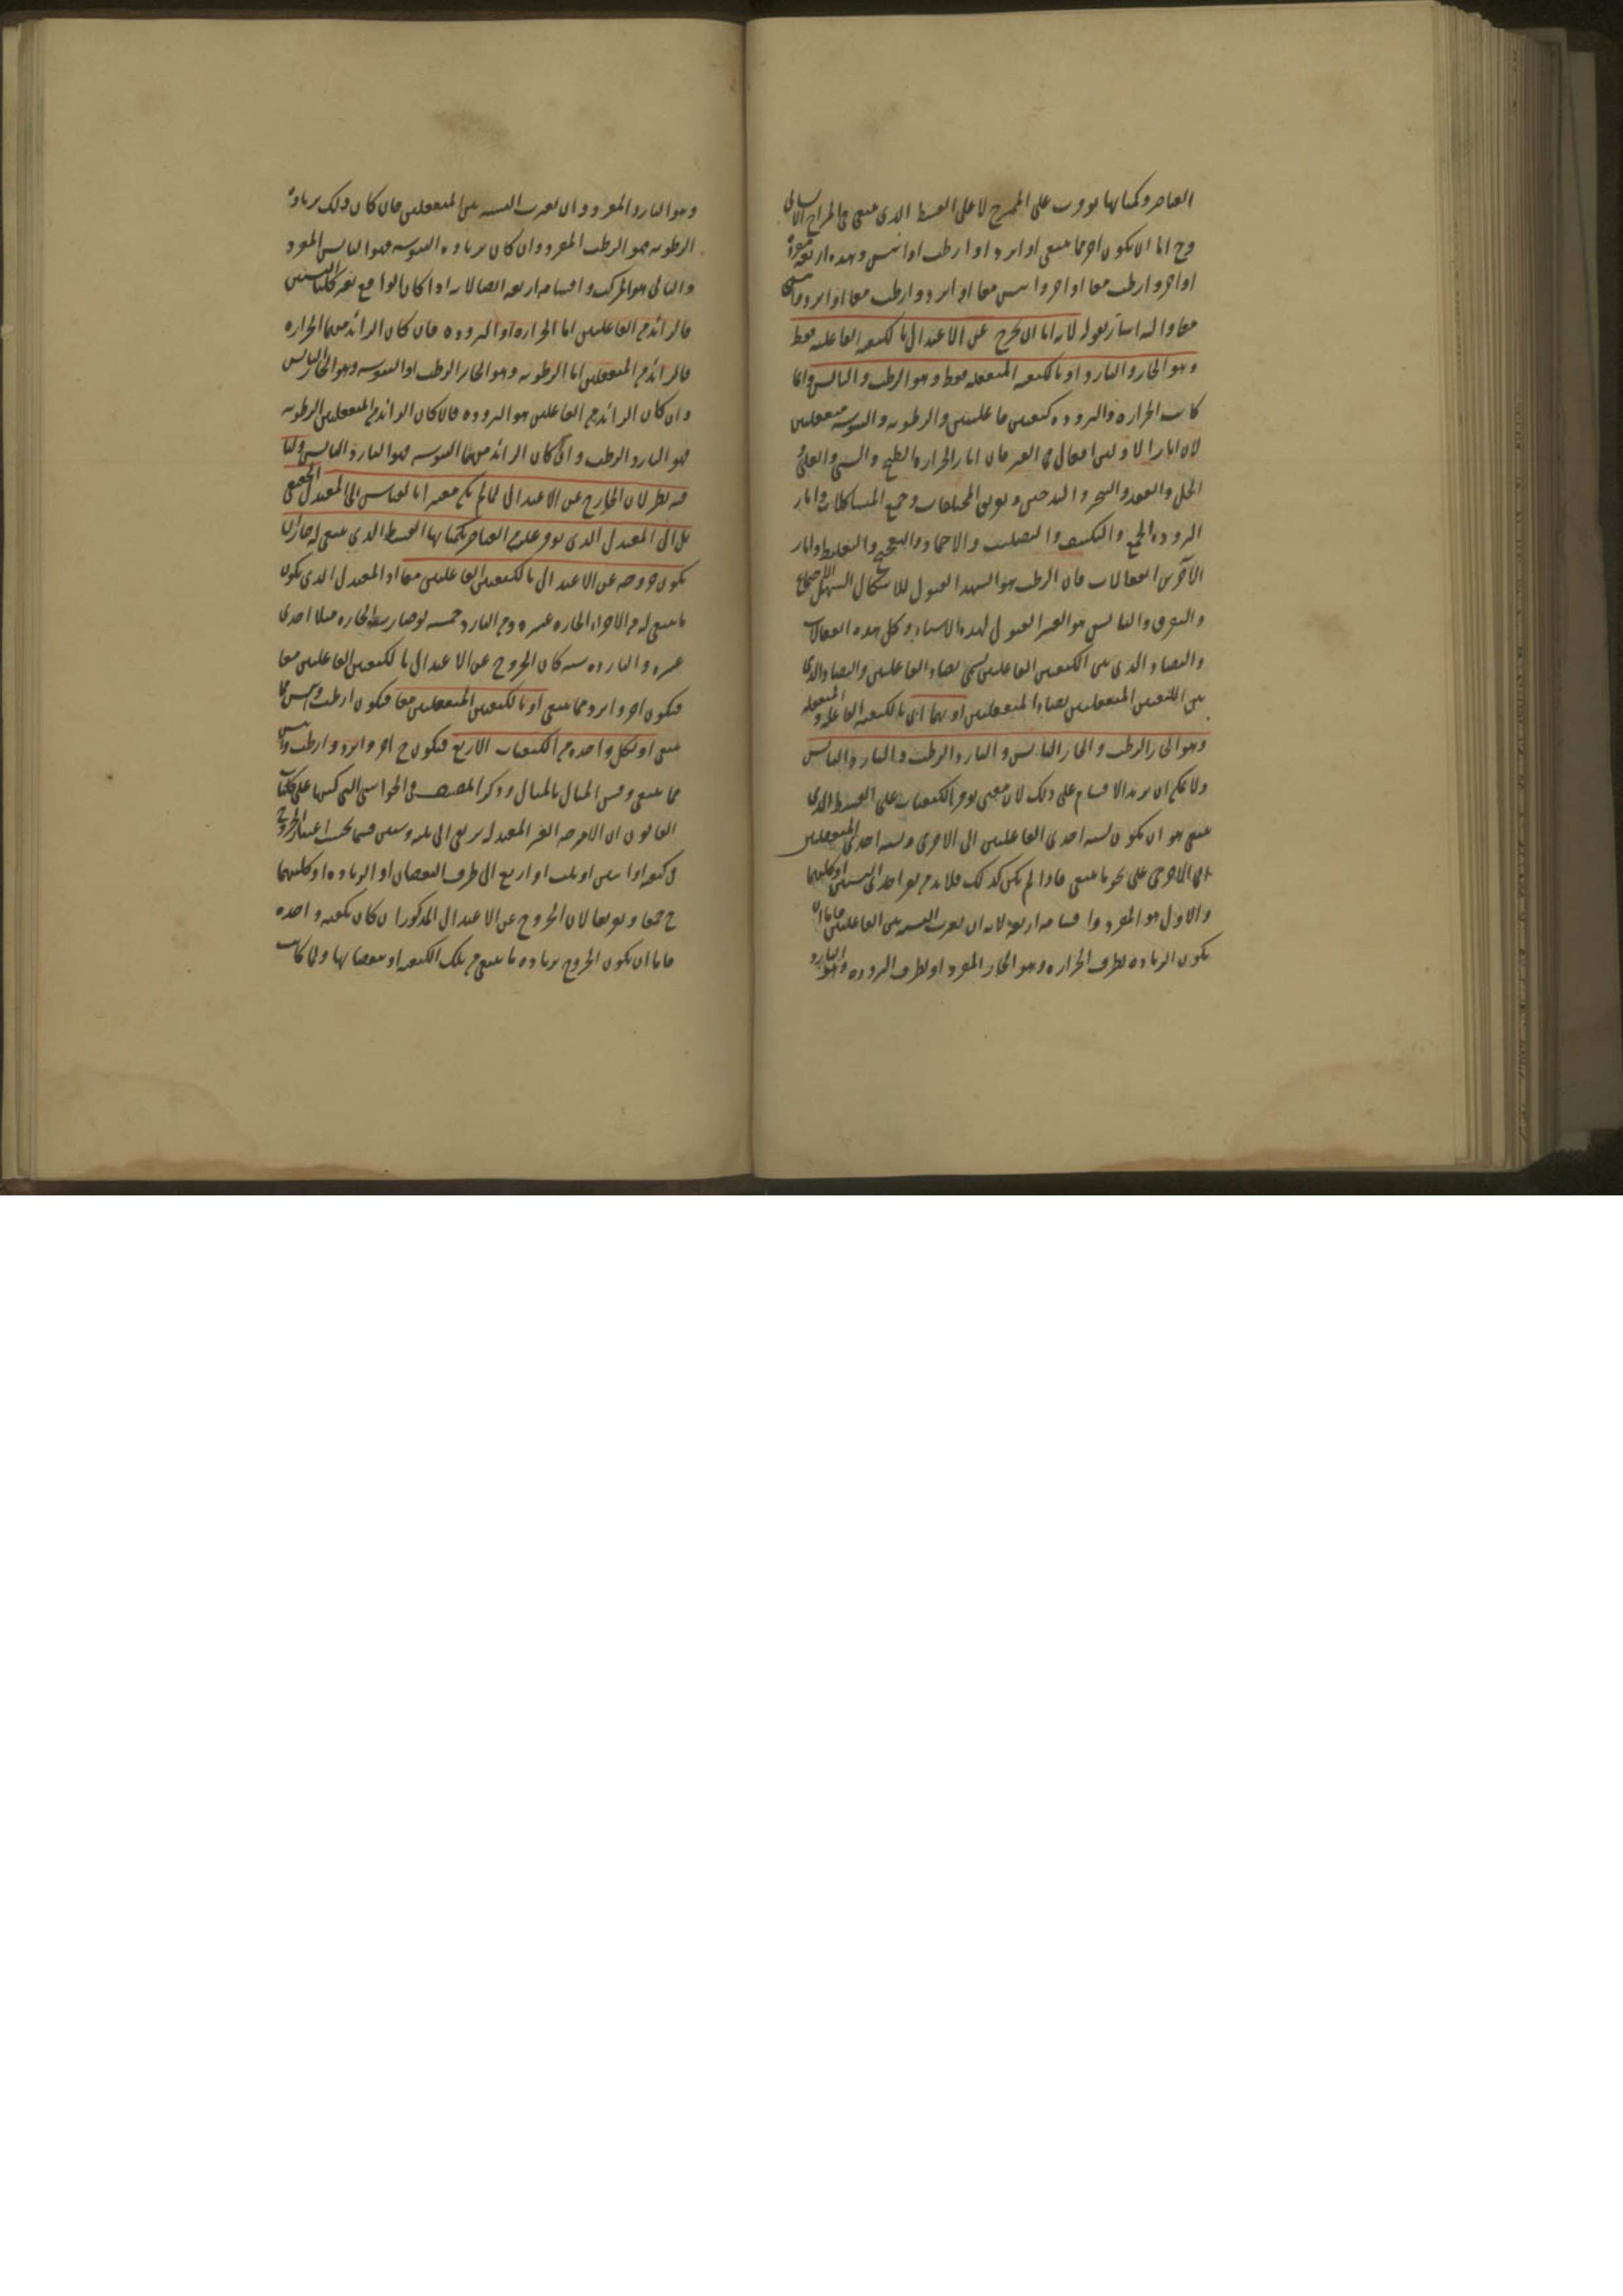 العناصر وكيفياتها توورت على الممتزج لا على القسط الذى ينبغى فى المزاج الانسانى
وح اما ان يكون احر مما ينبغى او ابرد او ارطب او ايبس وهذه اربعة مفردة
او احر وارطب معا او احر وايبس معا او ابرد وارطب معا او ابرد وايبس
معا واليه اشار بقوله لانه اما ان يخرج عن الاعتدال بالكيفية الفاعلة فقط
وهو الحار والبارد او بالكيفية المنفعلة فقط وهو الرطب واليابس وانما
كانت الحرارة والبرودة كيفيتين فاعليتين والرطوبة واليبوسة منفعلتين
لان اثار الاوليين افعال فى الغير فان اثار الحرارة الطبخ والشى والغلى
الحل والعقد والتبخير والتدخين وتفريق المختلفات وجمع المتشاكلات واثار
البرودة الجمع والتكثيف والتصليب والاجماد والتفجيج والتغليظ واثار
الآخرين انفعالات فان الرطب هو السهل القبول للاشكال السهل الاجتماع
والتفرق واليابس هو العسر القبول لهذه الاشياء وكل هذه انفعالات
والتضاد الذى بين الكيفيتين الفاعلتين يسمى تضاد الفاعلتين والتضاد الذى
بين الكيفيتين المنفعلتين تضاد المنفعلتين او بهما اى بالكيفية الفاعلة والمنفعلة
وهو الحار الرطب والحار اليابس والبارد الرطب والبارد اليابس
ولا يمكن ان يزيد الاقسام على ذلك لان معنى توفر الكيفيات على القسط الذى
ينبغى هو ان يكون نسبة احدى الفاعلتين الى الاخرى ونسبة احدى المنفعلتين
الى الاخرى على نحو ما ينبغى فاذا لم يكن كذلك فلا بد من تغير احدى النسبتين او كليهما
والاول هو المفرد واقسامه اربعة لانه ان تغيرت النسبة بين الفاعلتين فاما ان
يكون الزيادة بطرف الحرارة وهو الحار المفرد او بطرف البرودة وهو البارد
وهو البارد المفرد وان تغيرت النسبة بين المنفعلتين فان كان ذلك بزيادة
الرطوبة فهو الرطب المفرد وان كان بزيادة اليبوسة فهو اليابس المفرد
والثانى هو المركب واقسامه اربعة ايضا لانه اذا كان الواقع تغير كلتا النسبتين
فالزائد من الفاعلتين اما الحرارة او البرودة فان كان الزائد منهما الحرارة
فالزائد من المنفعلتين اما الرطوبة وهو الحار الرطب او اليبوسة وهو الحار اليابس
وان كان الزائد من الفاعلتين هو البرودة فان كان الزائد من المنفعلتين الرطوبة
فهو البارد الرطب وان كان الزائد منهما اليبوسة فهو البارد اليابس ولنا
فيه نظر لان الخارج عن الاعتدال لما لم يكن معتبرا بالقياس الى المعتدل الحقيقى
بل الى المعتدل الذى توفر عليه من العناصر بكيفياتها القسط الذى ينبغى له جاز ان
يكون خروجه عن الاعتدال بالكيفيتين الفاعلتين معا اذ المعتدل الذى يكون
ما ينبغى له من الاجزاء الحارة عشرة ومن البارد خمسة لو صارت الحارة مثلا احدى
عشرة والباردة ستة كان الخروج عن الاعتدال بالكيفيتين الفاعلتين معا
فيكون احر وابرد مما ينبغى او بالكيفيتين المنفعلتين معا فيكون ارطب وايبس مما
ينبغى او بكل واحدة من الكيفيات الاربع فيكون ح احر وابرد وارطب وايبس
مما ينبغى وقس المثال بالمثال وذكر المصنف فى الحواشى التى كتبها على كليات
القانون ان الامزجة الغير المعتدلة يرتقى الى ثلثة وستين قسما بحسب اعتبار الخروج
فى كيفية او اثنتين او ثلث او اربع الى طرف النقصان او الزيادة او كليهما
جمعا وتفريقا لان الخروج عن الاعتدال المذكور ان كان بكيفية واحدة
فاما ان يكون الخروج بزيادة ما ينبغى من تلك الكيفية او بنقصانها ولما كانت